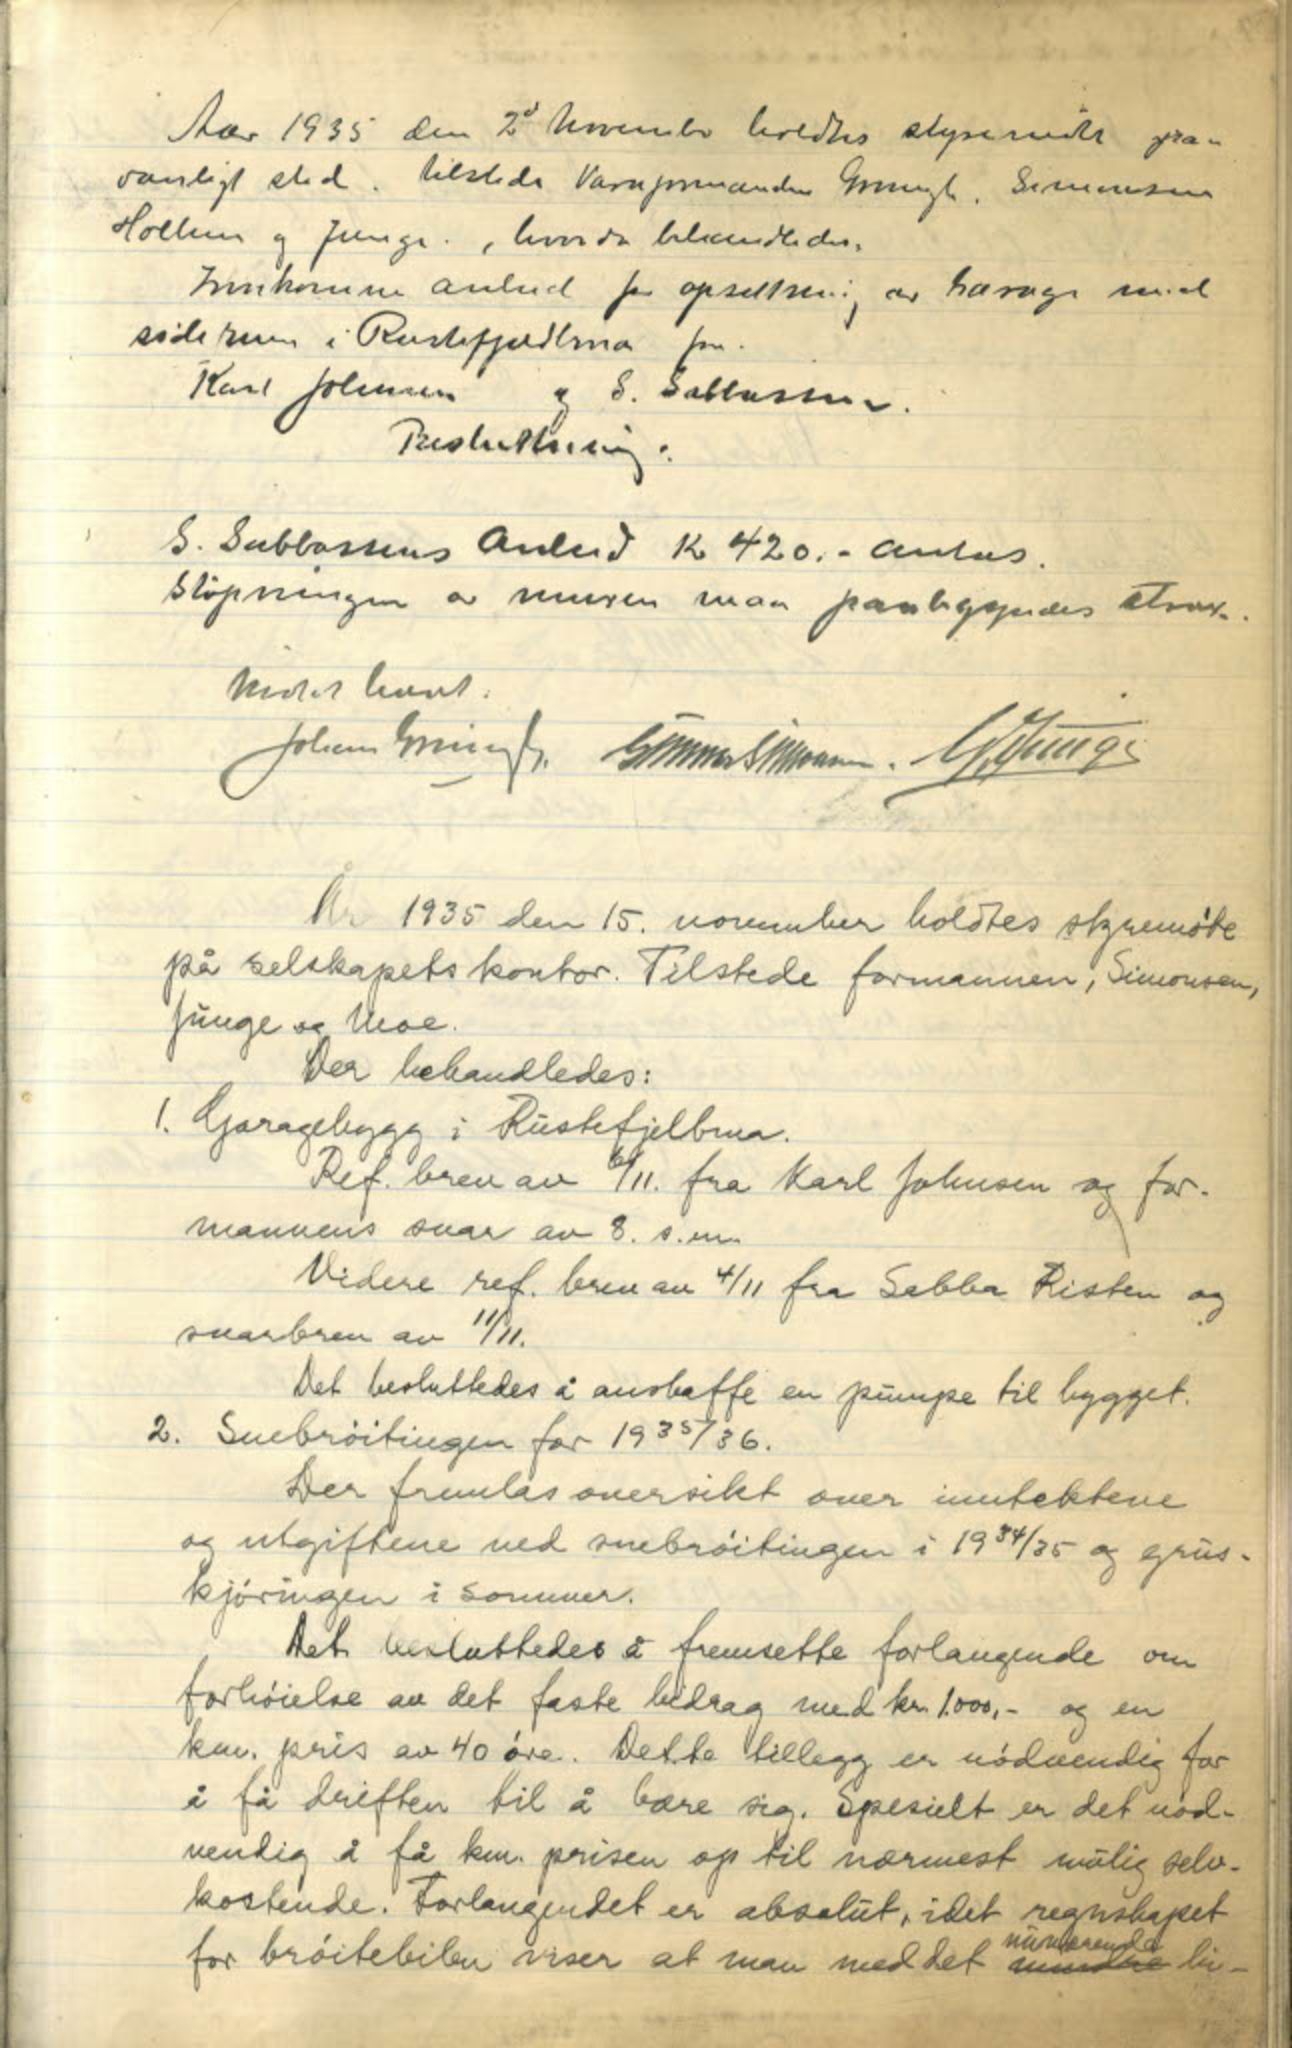 Aar 1935 den 2d November holdtes styremöte paa
vanligt sted. tilstede Varaformanden Gringh. Simonsen
Holthun og Junge., hvorda behandledes.
Innkomne anbud for opsettning av Garage med
siderum i Rustefjeldbma fra.
Karl Johnsen og S. Sabbassen.
Besluttning:
S. Sabbassens Anbud Kr 420.- antas.
Stöpningen av muren maa paabegyndes strax.
Mötet hævet.
Johan Simonsen. Junge
År 1935 den 15. november holdtes styremöte
på selskapets kontor. Tilstede formannen, Simonsen,
Junge og Moe.
Der behandledes:
1. Garagebygg i Rustefjelbma.
Ref. brev av 6/11. fra Karl Johnsen og for-
mannens svar av 8. s.m.
Videre ref. brev av 4/11 fra Sabba Risten og
svarbrev av 11/11.
Det besluttedes å anskaffe en pumpe til bygget.
2. Snebröitingen for 1935/36.
Der fremlås oversikt over inntektene
og utgiftene ved snebröitingen i 1934/35 og grus-
kjöringen i sommer.
Det besluttedes å fremsette forlangende om
forhöielse av det faste bidrag med kr. 1.000,- og en
km. pris av 40 öre. Dette tillegg er nödvendig for
å få driften til å bære sig. Spesielt er det nöd-
vendig å få km. prisen op til nærmest mulig selv-
kostende. Forlangendet er absolut, idet regnskapet
nuværende
for bröitebilen viser at man med det mindre bi-